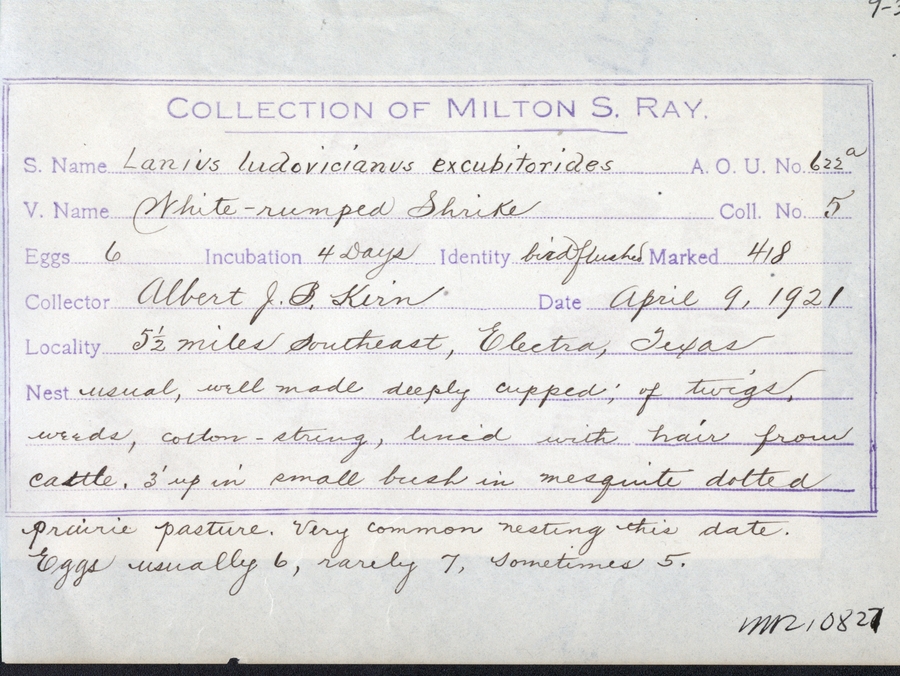 9-3
COLLECTION OF MILTON S. RAY.
S. Name Lanius ludovicianus excubitorides A. O. U. No. 622a
V. Name White-rumped Shrike Coll. No. 5
Eggs 6 Incubation 4 Days Identity bird flushed Marked 4/8
Collector Albert J. B. Kirn Date April 9, 1921
Locality 5½ miles Southeast, Electra, Texas
Nest usual, well made deeply cupped; of twigs,
weeds, cotton-string, lined with hair from
cattle. 3' up in small bush in mesquite dotted
prairie pasture. Very common nesting this date.
Eggs usually 6, rarely 7, sometimes 5.
MR 10827